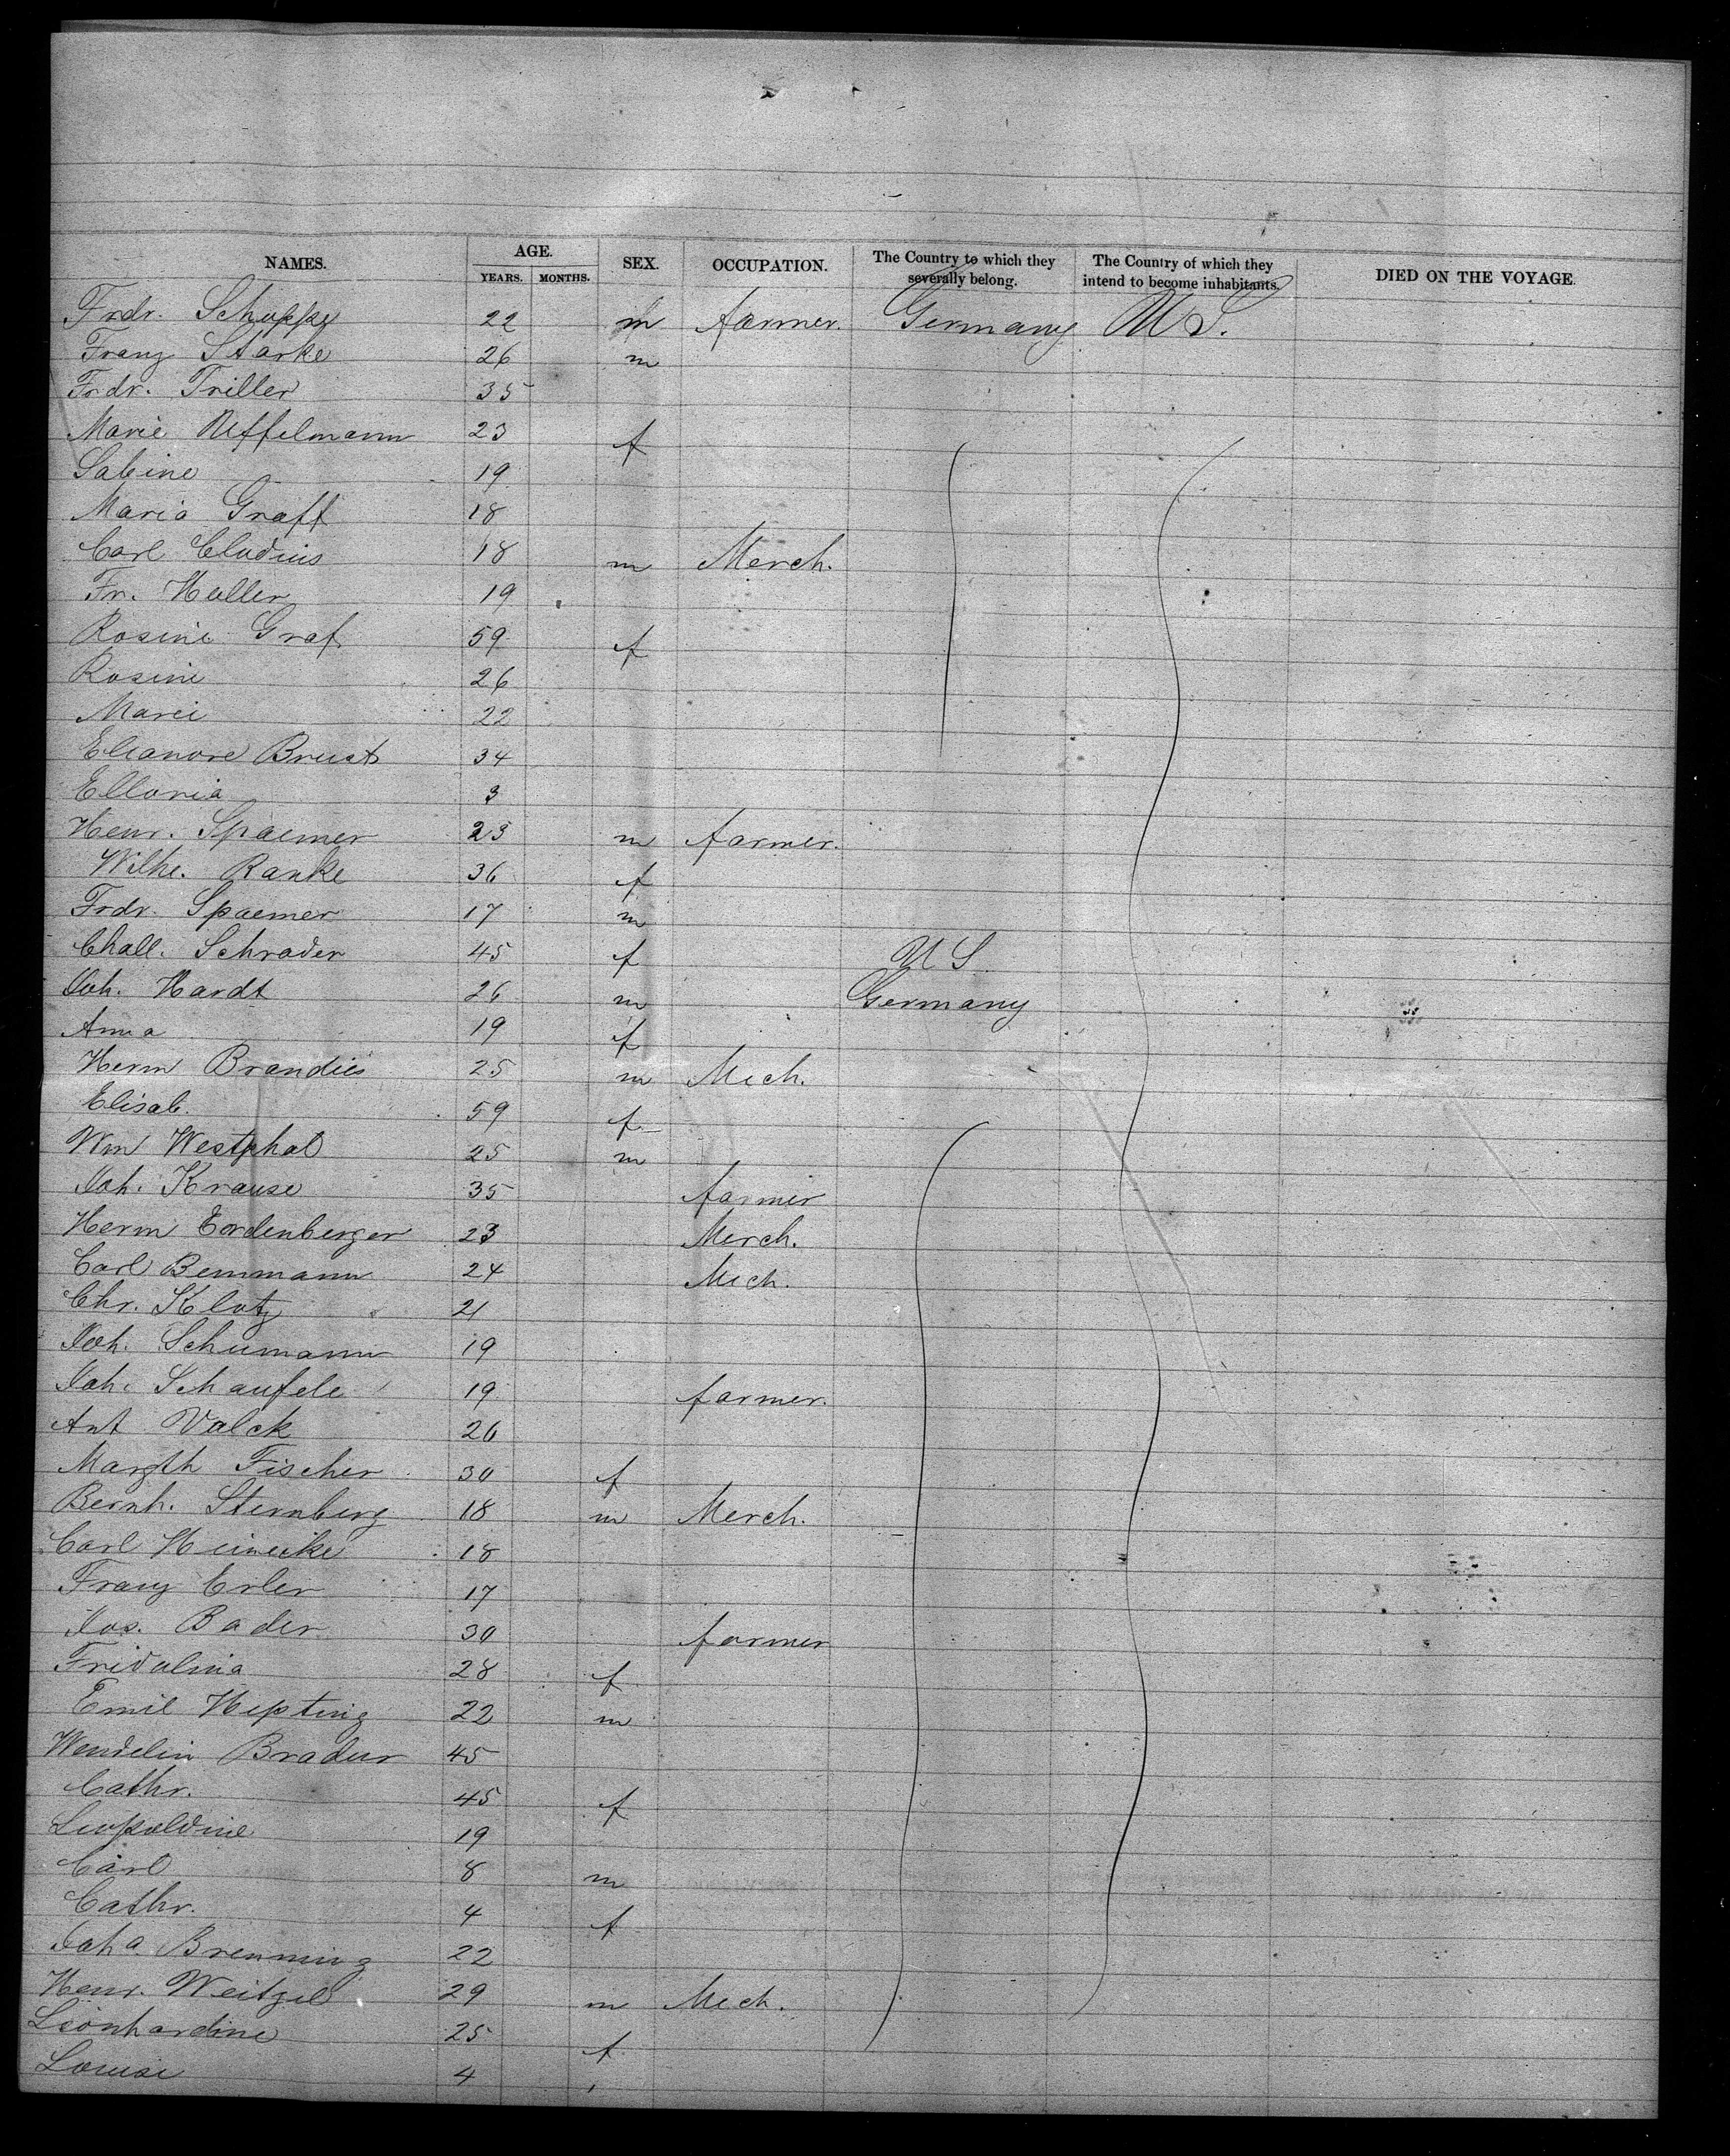 NAMES. AGE. YEARS. MONTHS. SEX. OCCUPATION. The Country to which they severally belong. The Country of which they intend to become inhabitants. DIED ON THE VOYAGE.
Frdr. Schoppe 22 m farmer. Germany U S.
Franz Starke 26 m
Frdr. Triller 35
Marie Uffelmann 23 f
Sabine 19
Maria Graff 18
Carl Cludius 18 m Merch.
Fr. Haller 19
Rosine Graf 59 f
Rosine 26
Marie 22
Eleanore Brust 34
Ellonia 3
Henr. Spaemer 23 m farmer.
Wilhe. Ranke 36 f
Frdr. Spaemer 17 m
Chall. Schrader 45 f U S
Joh. Hardt 26 m Germany
Anna 19 f
Herm Brandies 25 m Mech.
Elisab. 59 f
Wm Westphal 25 m
Joh. Krause 35 farmer
Herm Eordenberger 23 Merch.
Carl Bemmann 24 Mech.
Chr. Klotz 21
Joh. Schumann 19
Joh. Schaufele 19 farmer.
Ant Valck 26
Margth Fischer 30 f
Bernh. Sternberg 18 m Merch.
Carl Heinecke 18
Franz Erler 17
Jos. Bader 30 farmer
Fridolina 28 f
Emil Hepting 22 m
Wendelin Brader 45
Cathr. 45 f
Leopoldine 19
Carl 8 m
Cathr. 4 f
Joha Brenning 22
Henr. Weitzel 29 m Mech.
Leonhardine 25 f
Louise 4